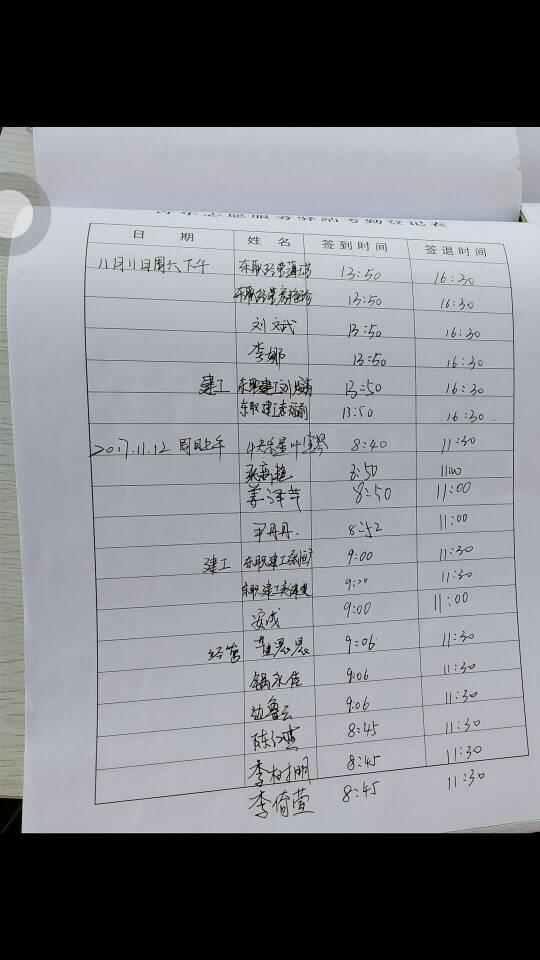 青年志愿服务驿站考勤登记表
日 期 姓 名 签到时间 签退时间
11月11日周六下午 东职经管 13:50 16:30
东职经管 13:50 16:30
刘斌 13:50 16:30
李娜 13:50 16:30
建工 东职建工刘 13:50 16:30
东职建工 13:50 16:30
2017.11.12 周日上午 8:40 11:30
8:50 11:00
姜泽芊 8:50 11:00
王丹丹. 8:52 11:00
建工 东职建工 9:00 11:30
东职建工 9:00 11:30
安成 9:00 11:00
经管 9:06 11:30
锅永佳 9:06 11:30
边鲁云 9:06 11:30
陈 8:45 11:30
李柏明 8:45 11:30
李倚萱 8:45 11:30